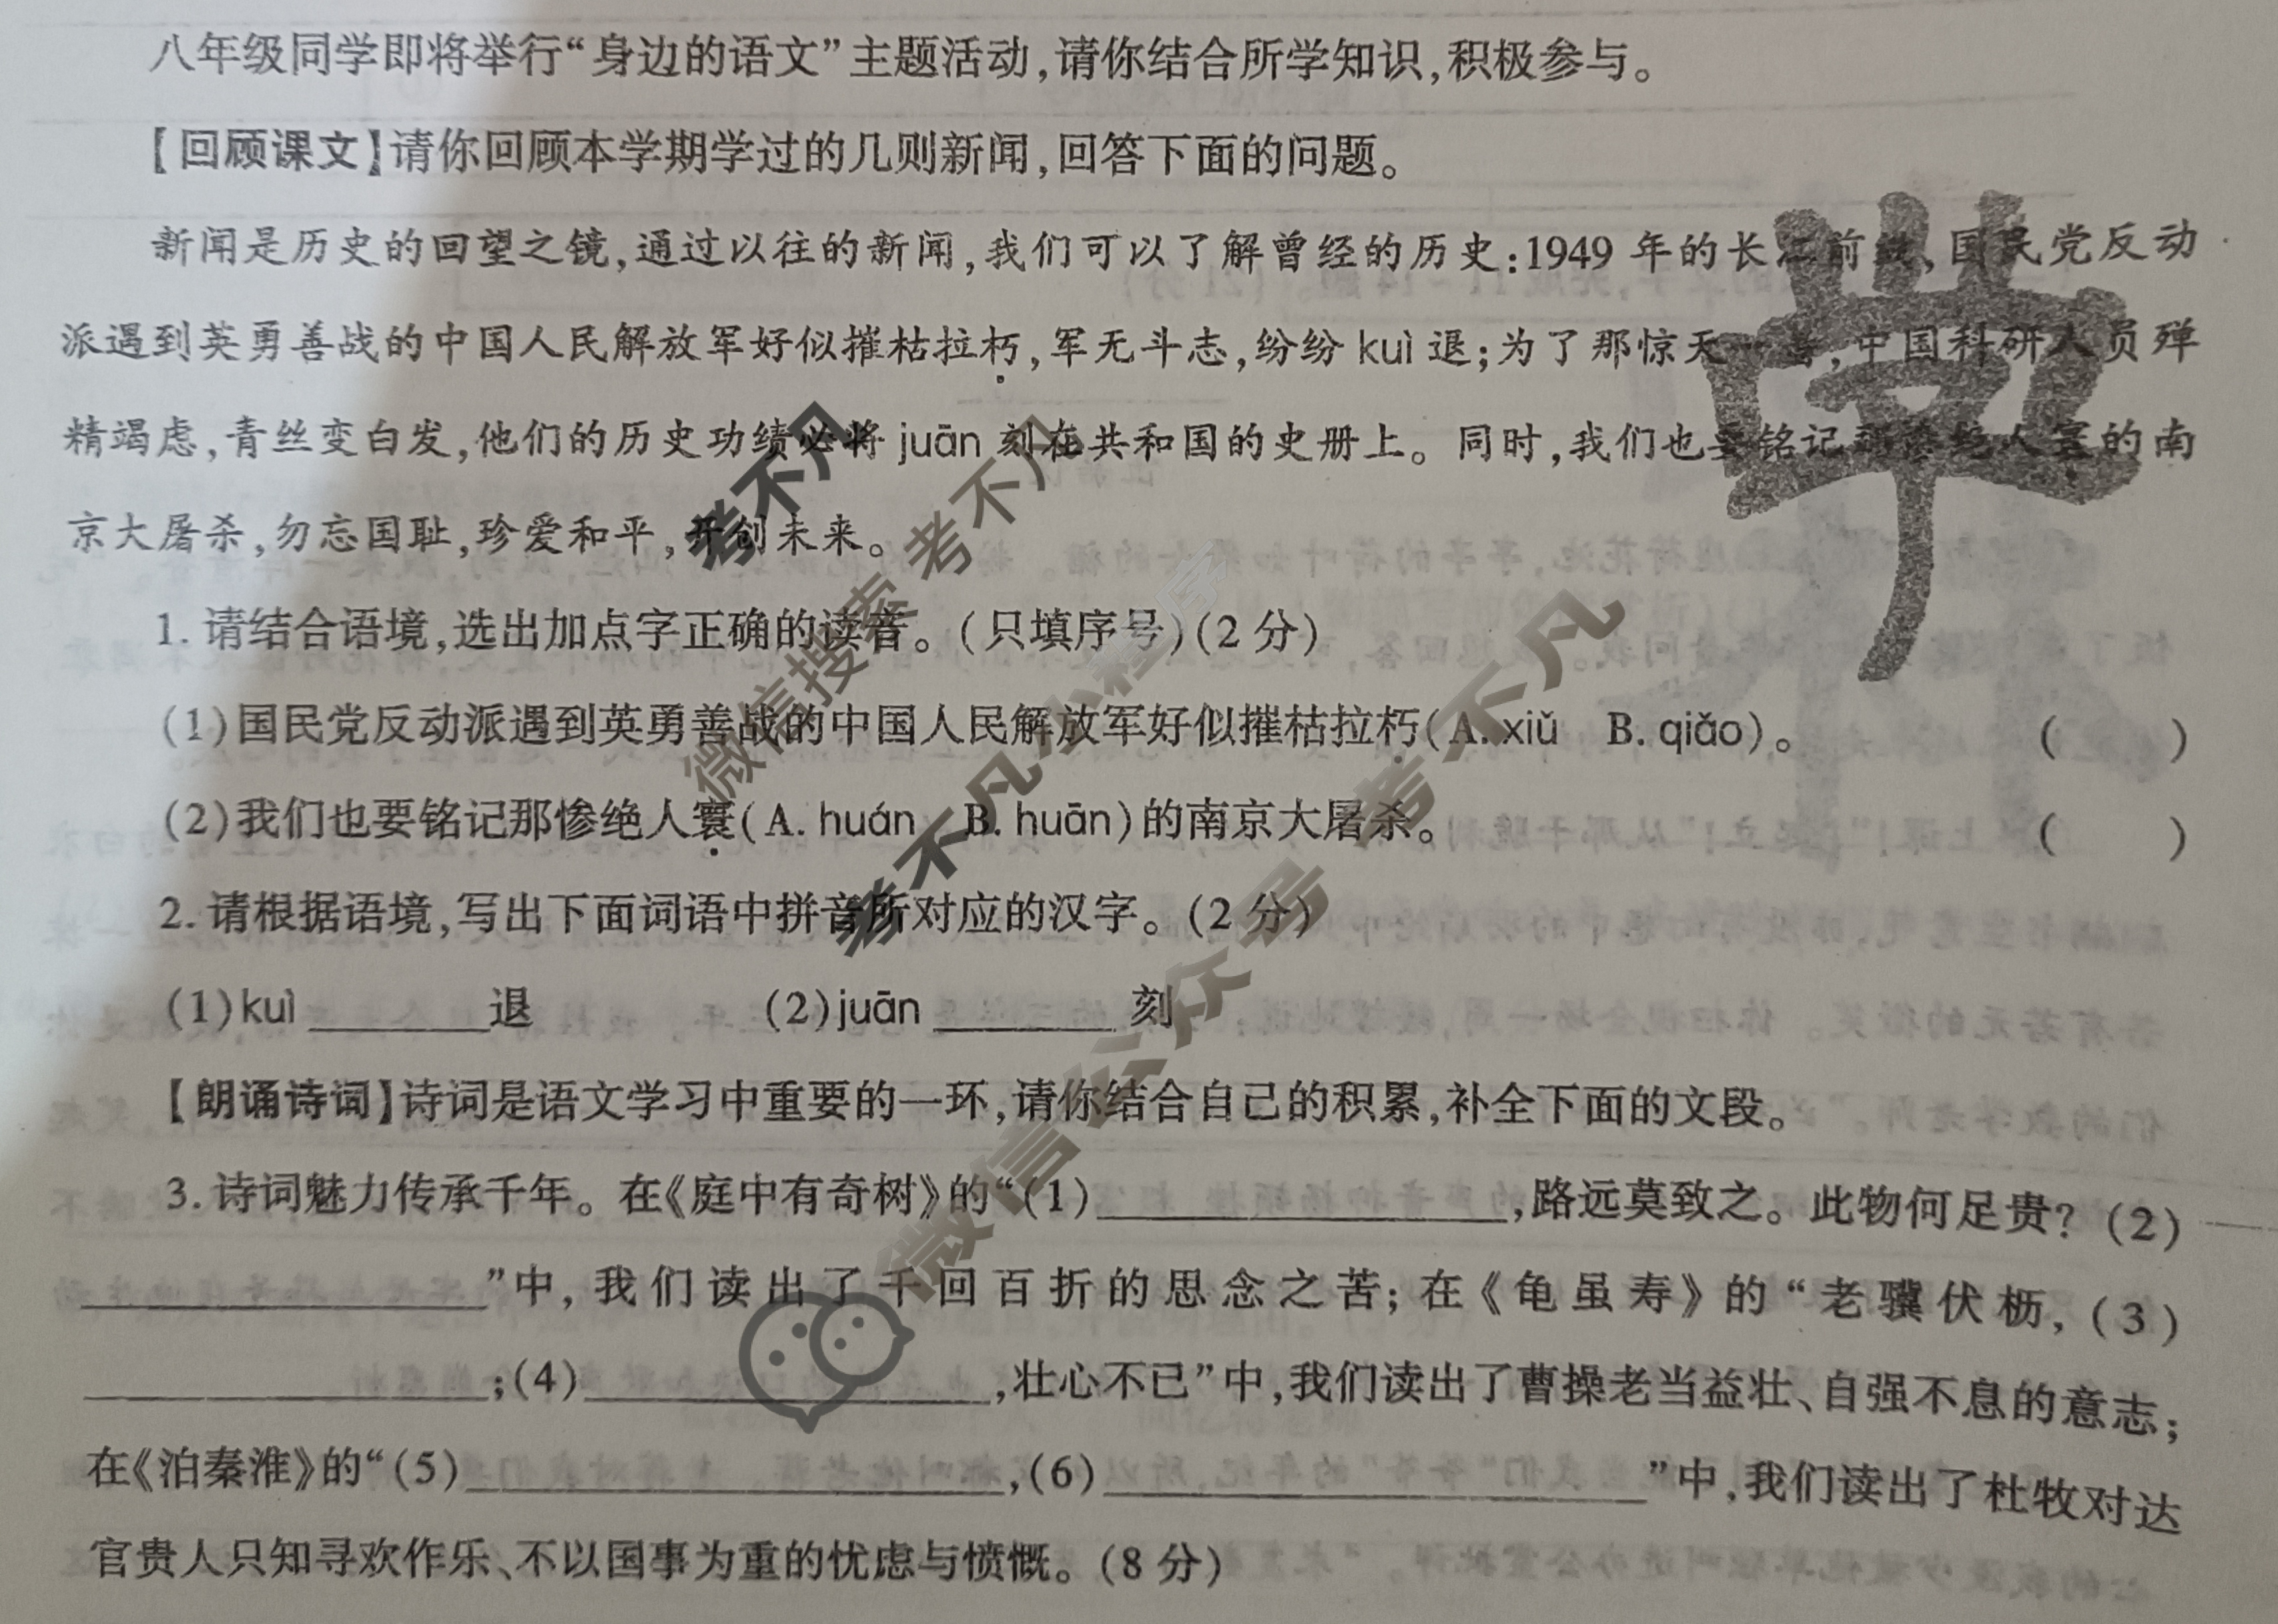 八年级同学即将举行“身边的语文”主题活动,请你结合所学知识,积极参与。
【回顾课文】请你回顾本学期学过的几则新闻,回答下面的问题。
新闻是历史的回望之镜,通过以往的新闻,我们可以了解曾经的历史:1949年的长江前线,国民党反动
派遇到英勇善战的中国人民解放军好似摧枯拉朽,军无斗志,纷纷kuì退;为了那惊天一著,中国科研人员殚
精竭虑,青丝变白发,他们的历史功绩必将juān刻在共和国的史册上。同时,我们也要铭记那惨绝人寰的南
京大屠杀,勿忘国耻,珍爱和平,开创未来。
1. 请结合语境,选出加点字正确的读音。(只填序号)(2分)
(1)国民党反动派遇到英勇善战的中国人民解放军好似摧枯拉朽(A. xiǔ B. qiǎo)。 ( )
(2)我们也要铭记那惨绝人寰(A. huán B. huān)的南京大屠杀。 ( )
2. 请根据语境,写出下面词语中拼音所对应的汉字。(2分)
(1)kuì ______退 (2)juān ______ 刻
【朗诵诗词】诗词是语文学习中重要的一环,请你结合自己的积累,补全下面的文段。
3. 诗词魅力传承千年。在《庭中有奇树》的“(1)______________,路远莫致之。此物何足贵?(2)
______________”中,我们读出了千回百折的思念之苦;在《龟虽寿》的“老骥伏枥,(3)
______________;(4)______________,壮心不已”中,我们读出了曹操老当益壮、自强不息的意志;
在《泊秦淮》的“(5)__________________,(6)__________________”中,我们读出了杜牧对达
官贵人只知寻欢作乐、不以国事为重的忧虑与愤慨。(8分)
考不凡
微信搜索 考不凡
考不凡小程序
微信公众号 考不凡